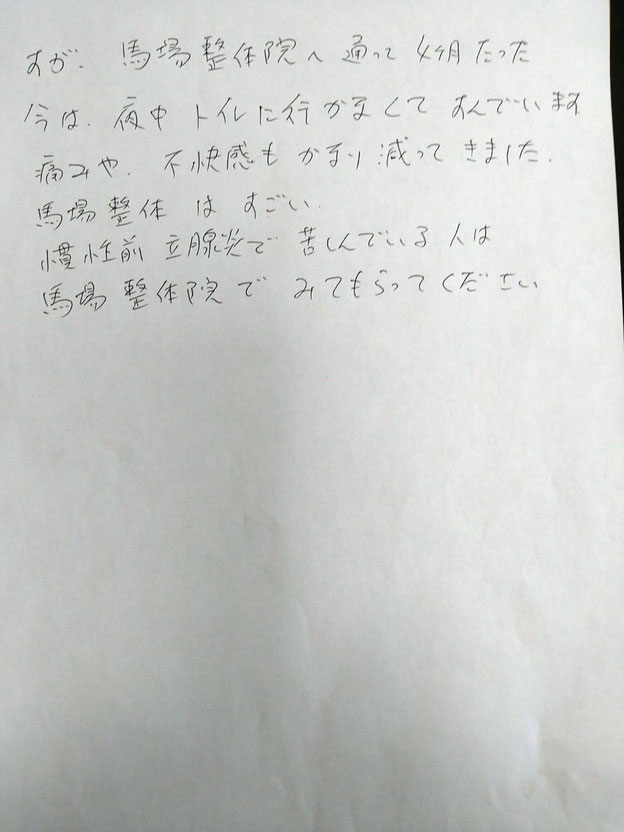 すが、馬場整体院へ通って4ヶ月たった
今は、夜中トイレに行かなくてすんでいます
痛みや、不快感もかなり減ってきました。
馬場整体はすごい。
慣性前立腺炎で苦しんでいる人は
馬場整体院でみてもらってください